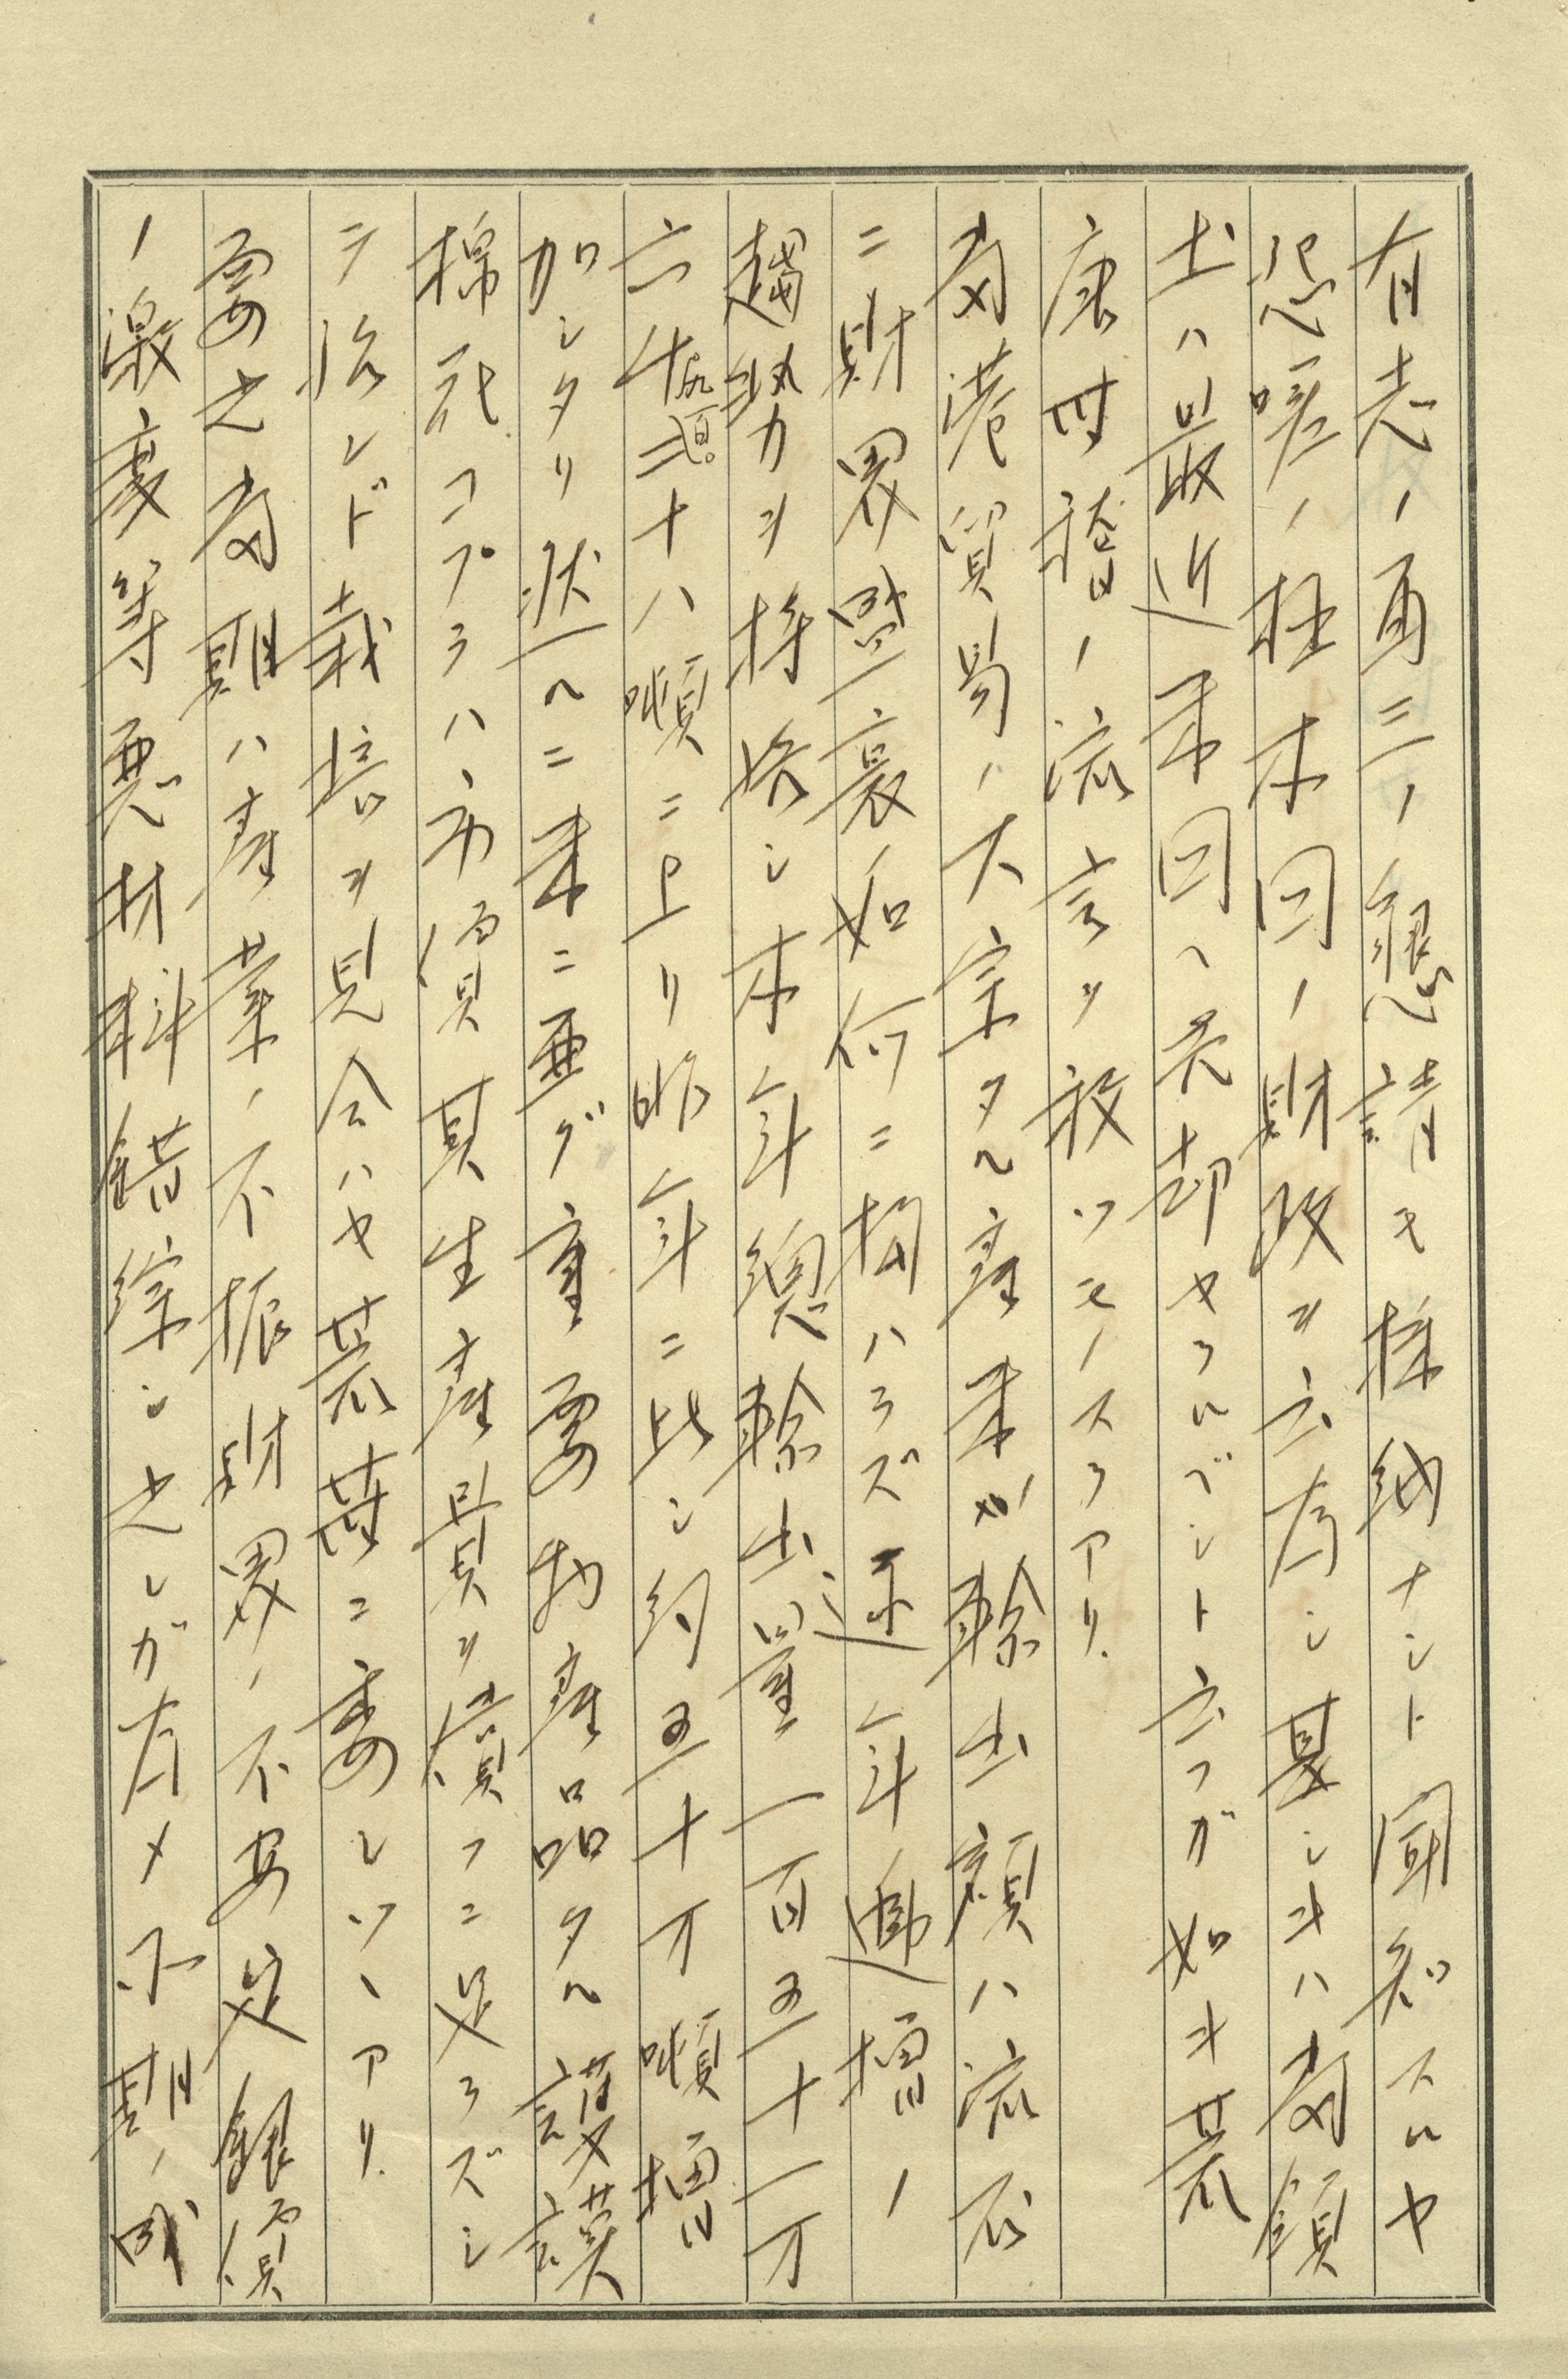 有志ノ再三ノ懇請モ採納ナシト聞知スルヤ
怨嗟ノ極本国ノ財政ヲ云為シ甚シキハ当領
土ハ最近米国ヘ売却セラルベシト云フガ如キ荒
唐無稽ノ流言ヲ放ツモノスラアリ.
当港貿易ノ大宗タル産米ガ輸出額ハ流石
ニ財界盛衰如何ニ拘ハラズ逐年逓増ノ
趨勢ヲ持続シ本年総輸出量一百五十一万
六千九百三十八噸ニ上リ昨年ニ比シ約五十万噸増
加シタリ然ルニ米ニ亜グ重要物産品タル護謨
棉花コプラハ市價其生産費ヲ償フニ足ラズシ
テ殆ンド栽培ヲ見合ハセ荒蕪ニ委シツヽアリ.
要之当期ハ産業ノ不振財界ノ不安定銀價
ノ激変等悪材料錯綜シ之レガ為メ期ノ成